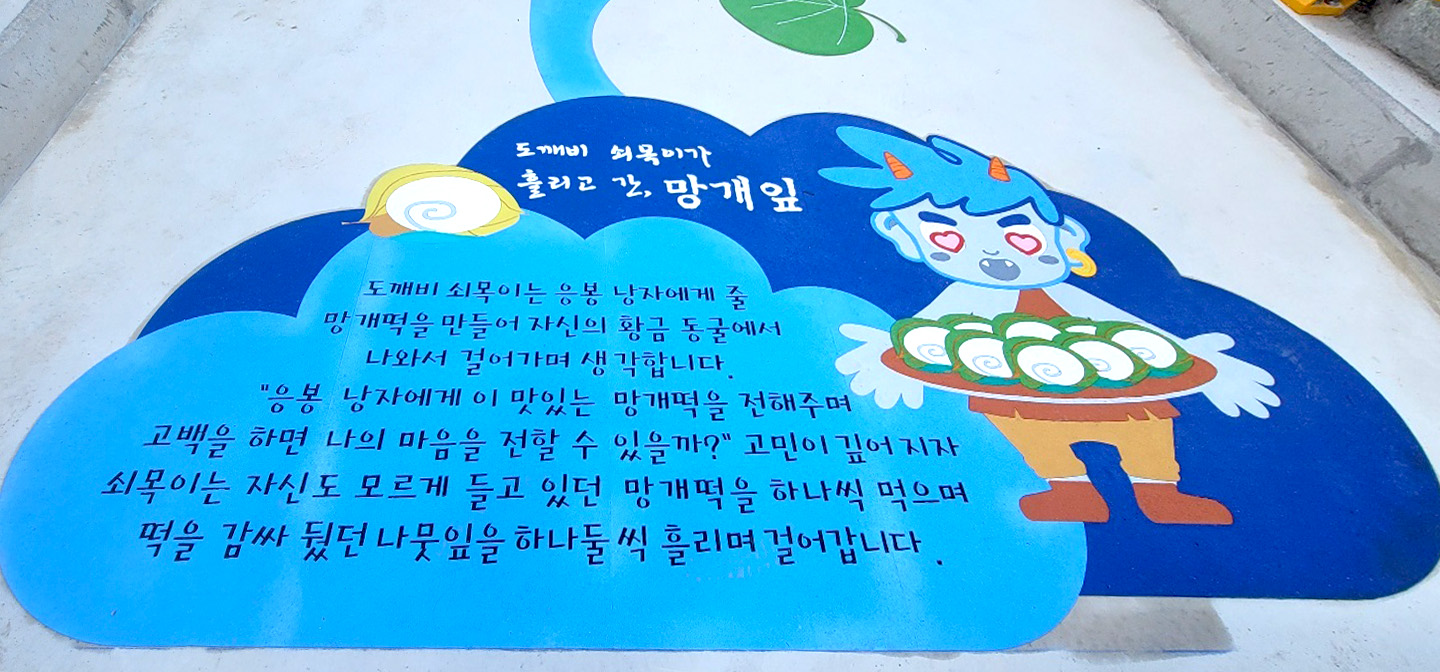 도깨비 쇠목이가
흘리고 간, 망개잎
도깨비 쇠목이는 응봉 낭자에게 줄
망개떡을 만들어 자신의 황금 동굴에서
나와서 걸어가며 생각합니다.
"응봉 낭자에게 이 맛있는 망개떡을 전해주며
고백을 하면 나의 마음을 전할 수 있을까?" 고민이 깊어 지자
쇠목이는 자신도 모르게 들고 있던 망개떡을 하나씩 먹으며
떡을 감싸 뒀던 나뭇잎을 하나둘 씩 흘리며 걸어갑니다.